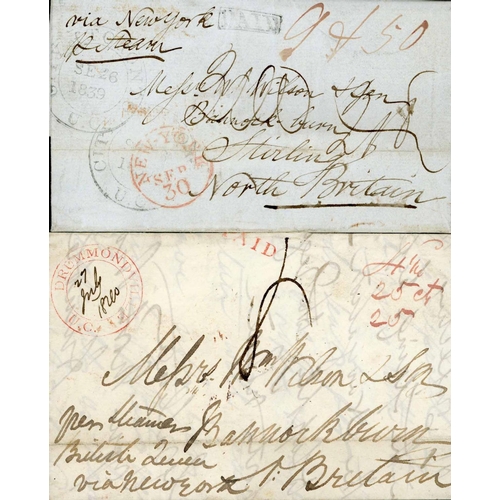 via New York
p Steam
PAID
9 + 50
SE 26
1839
U.C.
CIT
U.C.
NEW-YORK
SEP
30
Messrs Wm Wilson & Son
Bannockburn
Stirling
North Britain
PAID
DRUMMONDVILLE
U.C.
27
July
1840
25
25
8
Messrs Wm Wilson & Son
per steamer
Bannockburn
British Queen
via New York
N. Britain